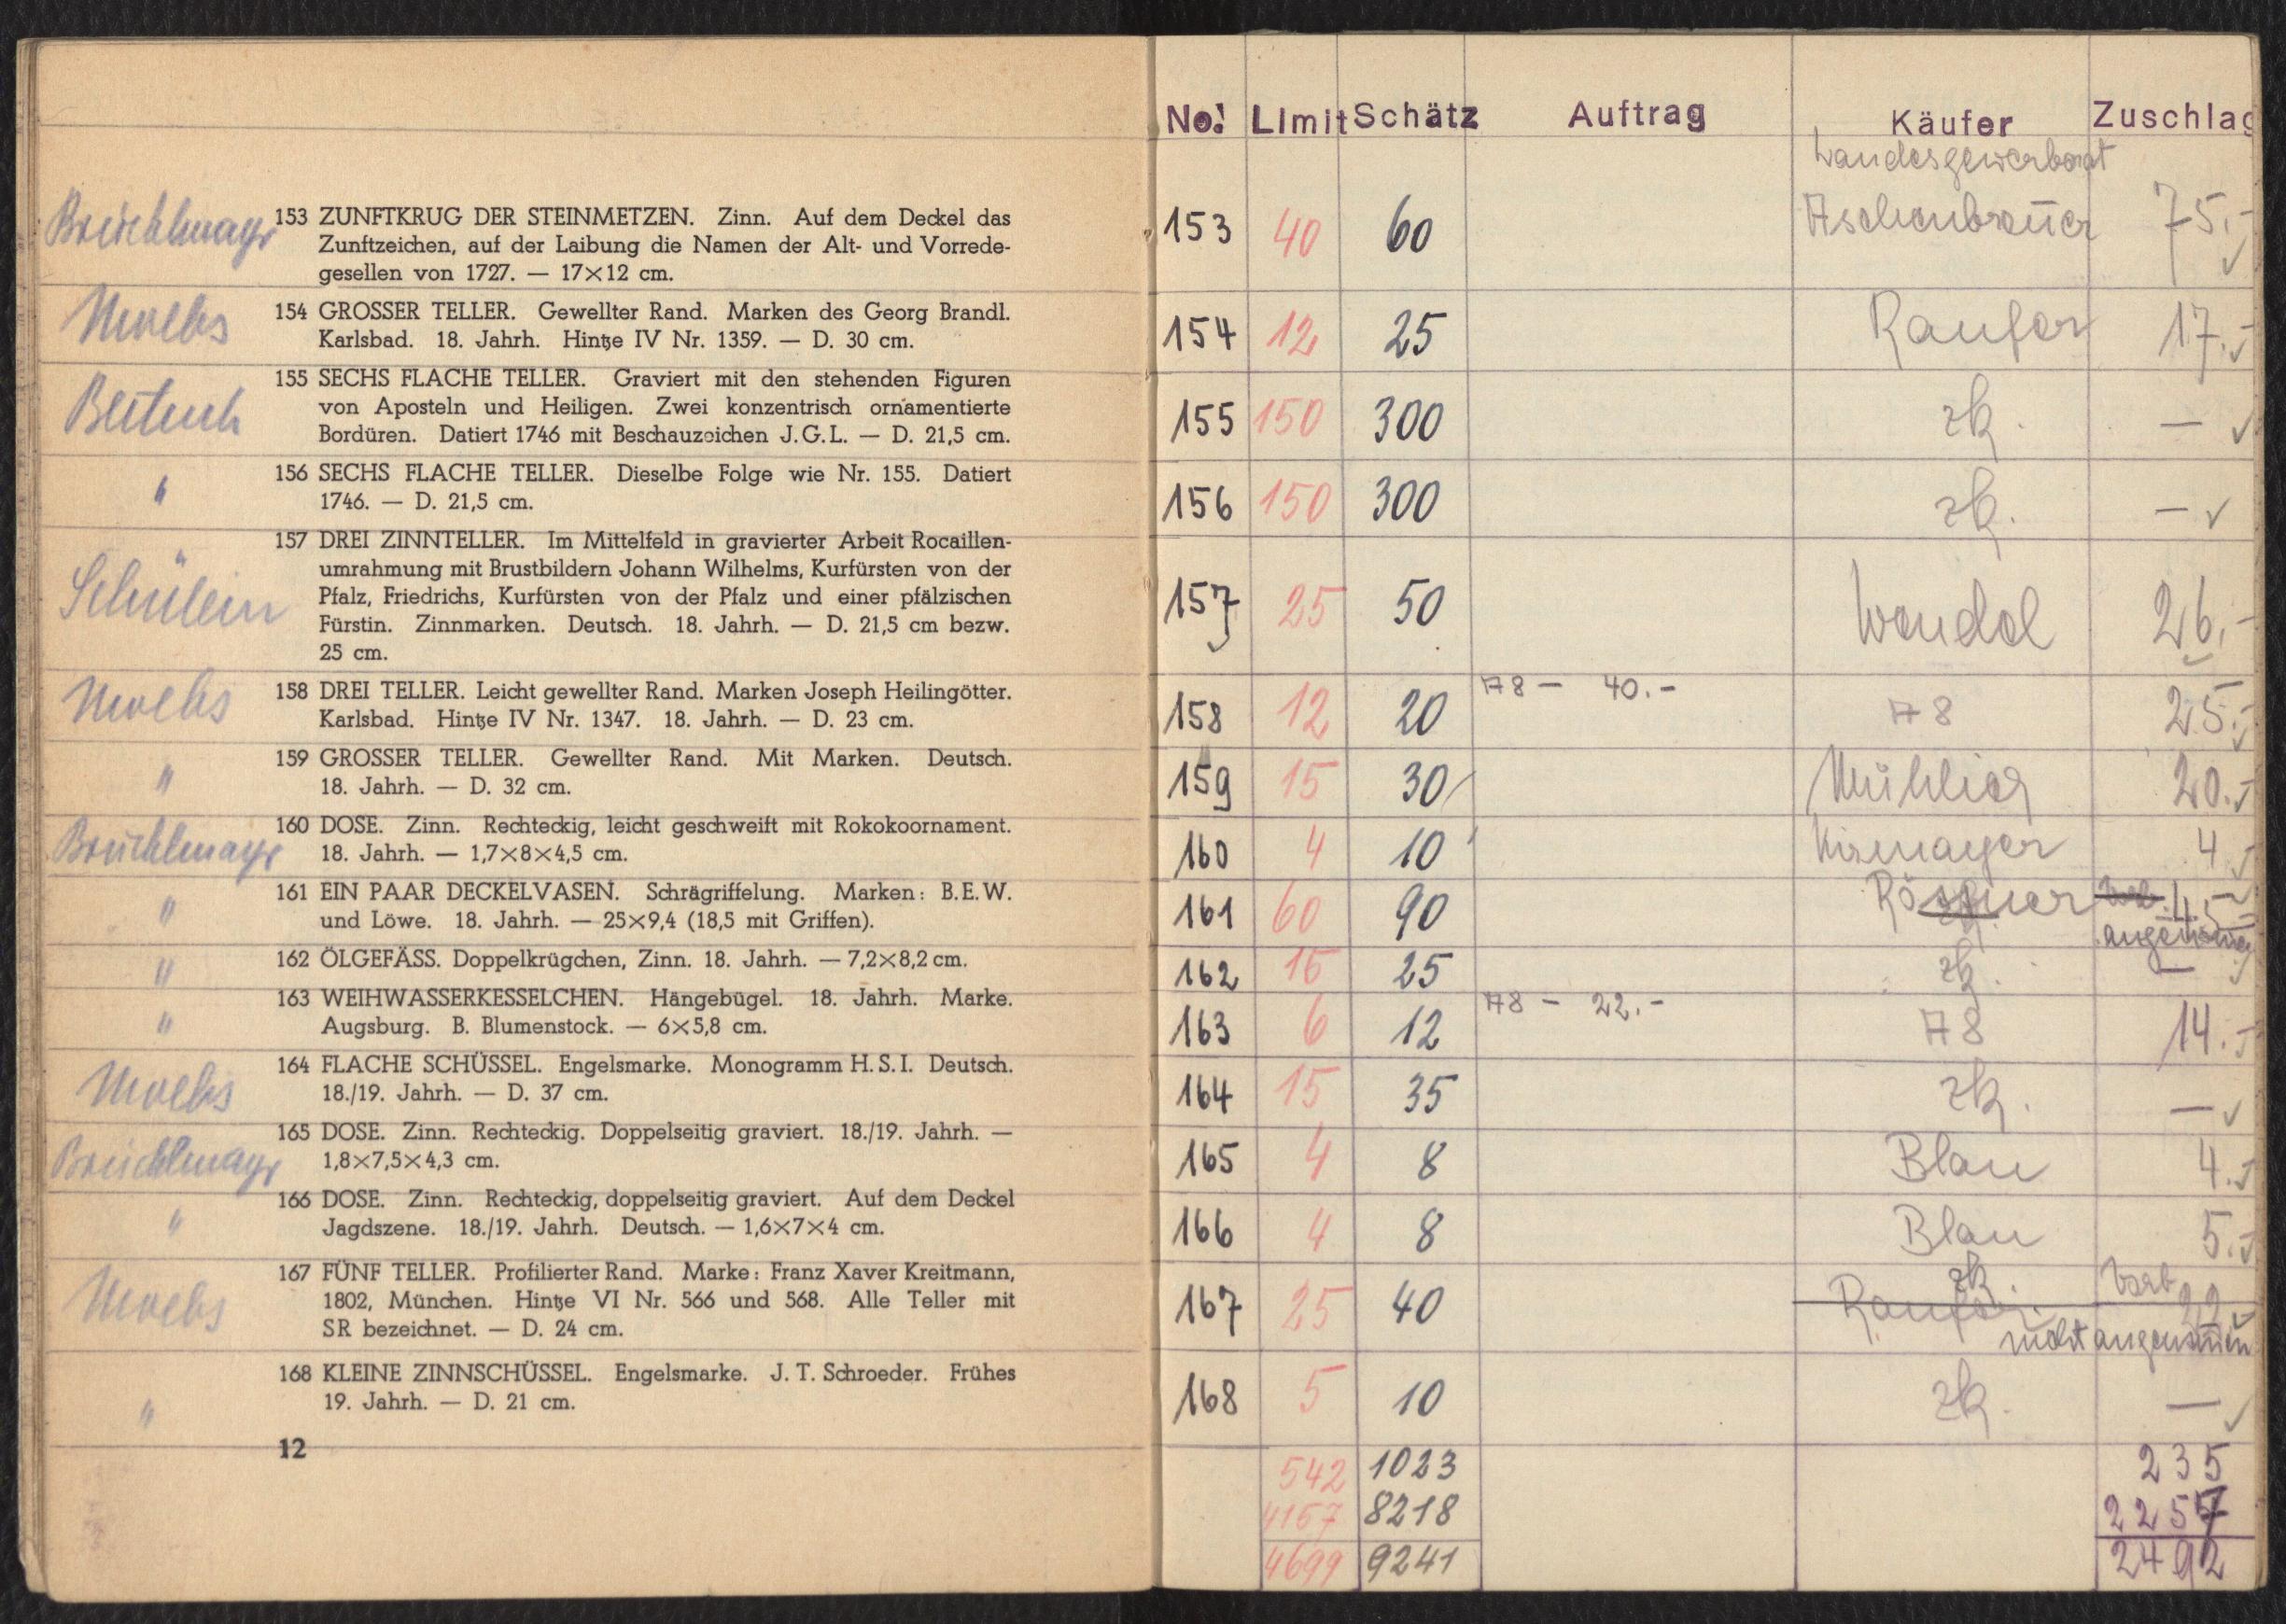 Brüchlmayr
153 ZUNFTKRUG DER STEINMETZEN. Zinn. Auf dem Deckel das
Zunftzeichen, auf der Laibung die Namen der Alt- und Vorrede-
gesellen von 1727. — 17×12 cm.
154 GROSSER TELLER. Gewellter Rand. Marken des Georg Brandl.
Karlsbad. 18. Jahrh. Hintze IV Nr. 1359. — D. 30 cm.
155 SECHS FLACHE TELLER. Graviert mit den stehenden Figuren
von Aposteln und Heiligen. Zwei konzentrisch ornamentierte
Bordüren. Datiert 1746 mit Beschauzeichen J.G.L. — D. 21,5 cm.
"
156 SECHS FLACHE TELLER. Dieselbe Folge wie Nr. 155. Datiert
1746. — D. 21,5 cm.
Schülein
157 DREI ZINNTELLER. Im Mittelfeld in gravierter Arbeit Rocaillen-
umrahmung mit Brustbildern Johann Wilhelms, Kurfürsten von der
Pfalz, Friedrichs, Kurfürsten von der Pfalz und einer pfälzischen
Fürstin. Zinnmarken. Deutsch. 18. Jahrh. — D. 21,5 cm bezw.
25 cm.
158 DREI TELLER. Leicht gewellter Rand. Marken Joseph Heilingötter.
Karlsbad. Hintze IV Nr. 1347. 18. Jahrh. — D. 23 cm.
"
159 GROSSER TELLER. Gewellter Rand. Mit Marken. Deutsch.
18. Jahrh. — D. 32 cm.
Brüchlmayr
160 DOSE. Zinn. Rechteckig, leicht geschweift mit Rokokoornament.
18. Jahrh. — 1,7×8×4,5 cm.
"
161 EIN PAAR DECKELVASEN. Schrägriffelung. Marken: B.E.W.
und Löwe. 18. Jahrh. — 25×9,4 (18,5 mit Griffen).
"
162 ÖLGEFÄSS. Doppelkrügchen, Zinn. 18. Jahrh. — 7,2×8,2 cm.
"
163 WEIHWASSERKESSELCHEN. Hängebügel. 18. Jahrh. Marke.
Augsburg. B. Blumenstock. — 6×5,8 cm.
164 FLACHE SCHÜSSEL. Engelsmarke. Monogramm H.S.I. Deutsch.
18./19. Jahrh. — D. 37 cm.
Brüchlmayr
165 DOSE. Zinn. Rechteckig. Doppelseitig graviert. 18./19. Jahrh. —
1,8×7,5×4,3 cm.
"
166 DOSE. Zinn. Rechteckig, doppelseitig graviert. Auf dem Deckel
Jagdszene. 18./19. Jahrh. Deutsch. — 1,6×7×4 cm.
167 FÜNF TELLER. Profilierter Rand. Marke: Franz Xaver Kreitmann,
1802, München. Hintze VI Nr. 566 und 568. Alle Teller mit
SR bezeichnet. — D. 24 cm.
"
168 KLEINE ZINNSCHÜSSEL. Engelsmarke. J. T. Schroeder. Frühes
19. Jahrh. — D. 21 cm.
12
No. Limit Schätz Auftrag Käufer Zuschlag
153 40 60 Aschenbrenner 75.-
154 12 25 17.-
155 150 300 zk. —
156 150 300 zk. —
157 25 50 26.-
158 12 20 A8 — 40.- A8 25.-
159 15 30 20.-
160 4 10 4
161 60 90 Rösner 45
162 15 25 zk. —
163 6 12 A8 — 22.- A8 14.-
164 15 35 zk. —
165 4 8 Blau 4.-
166 4 8 Blau 5.-
167 25 40 zk. Vorb. 22
nicht angenommen
168 5 10 zk. —
542 1023 235
4157 8218 2257
4699 9241 2492